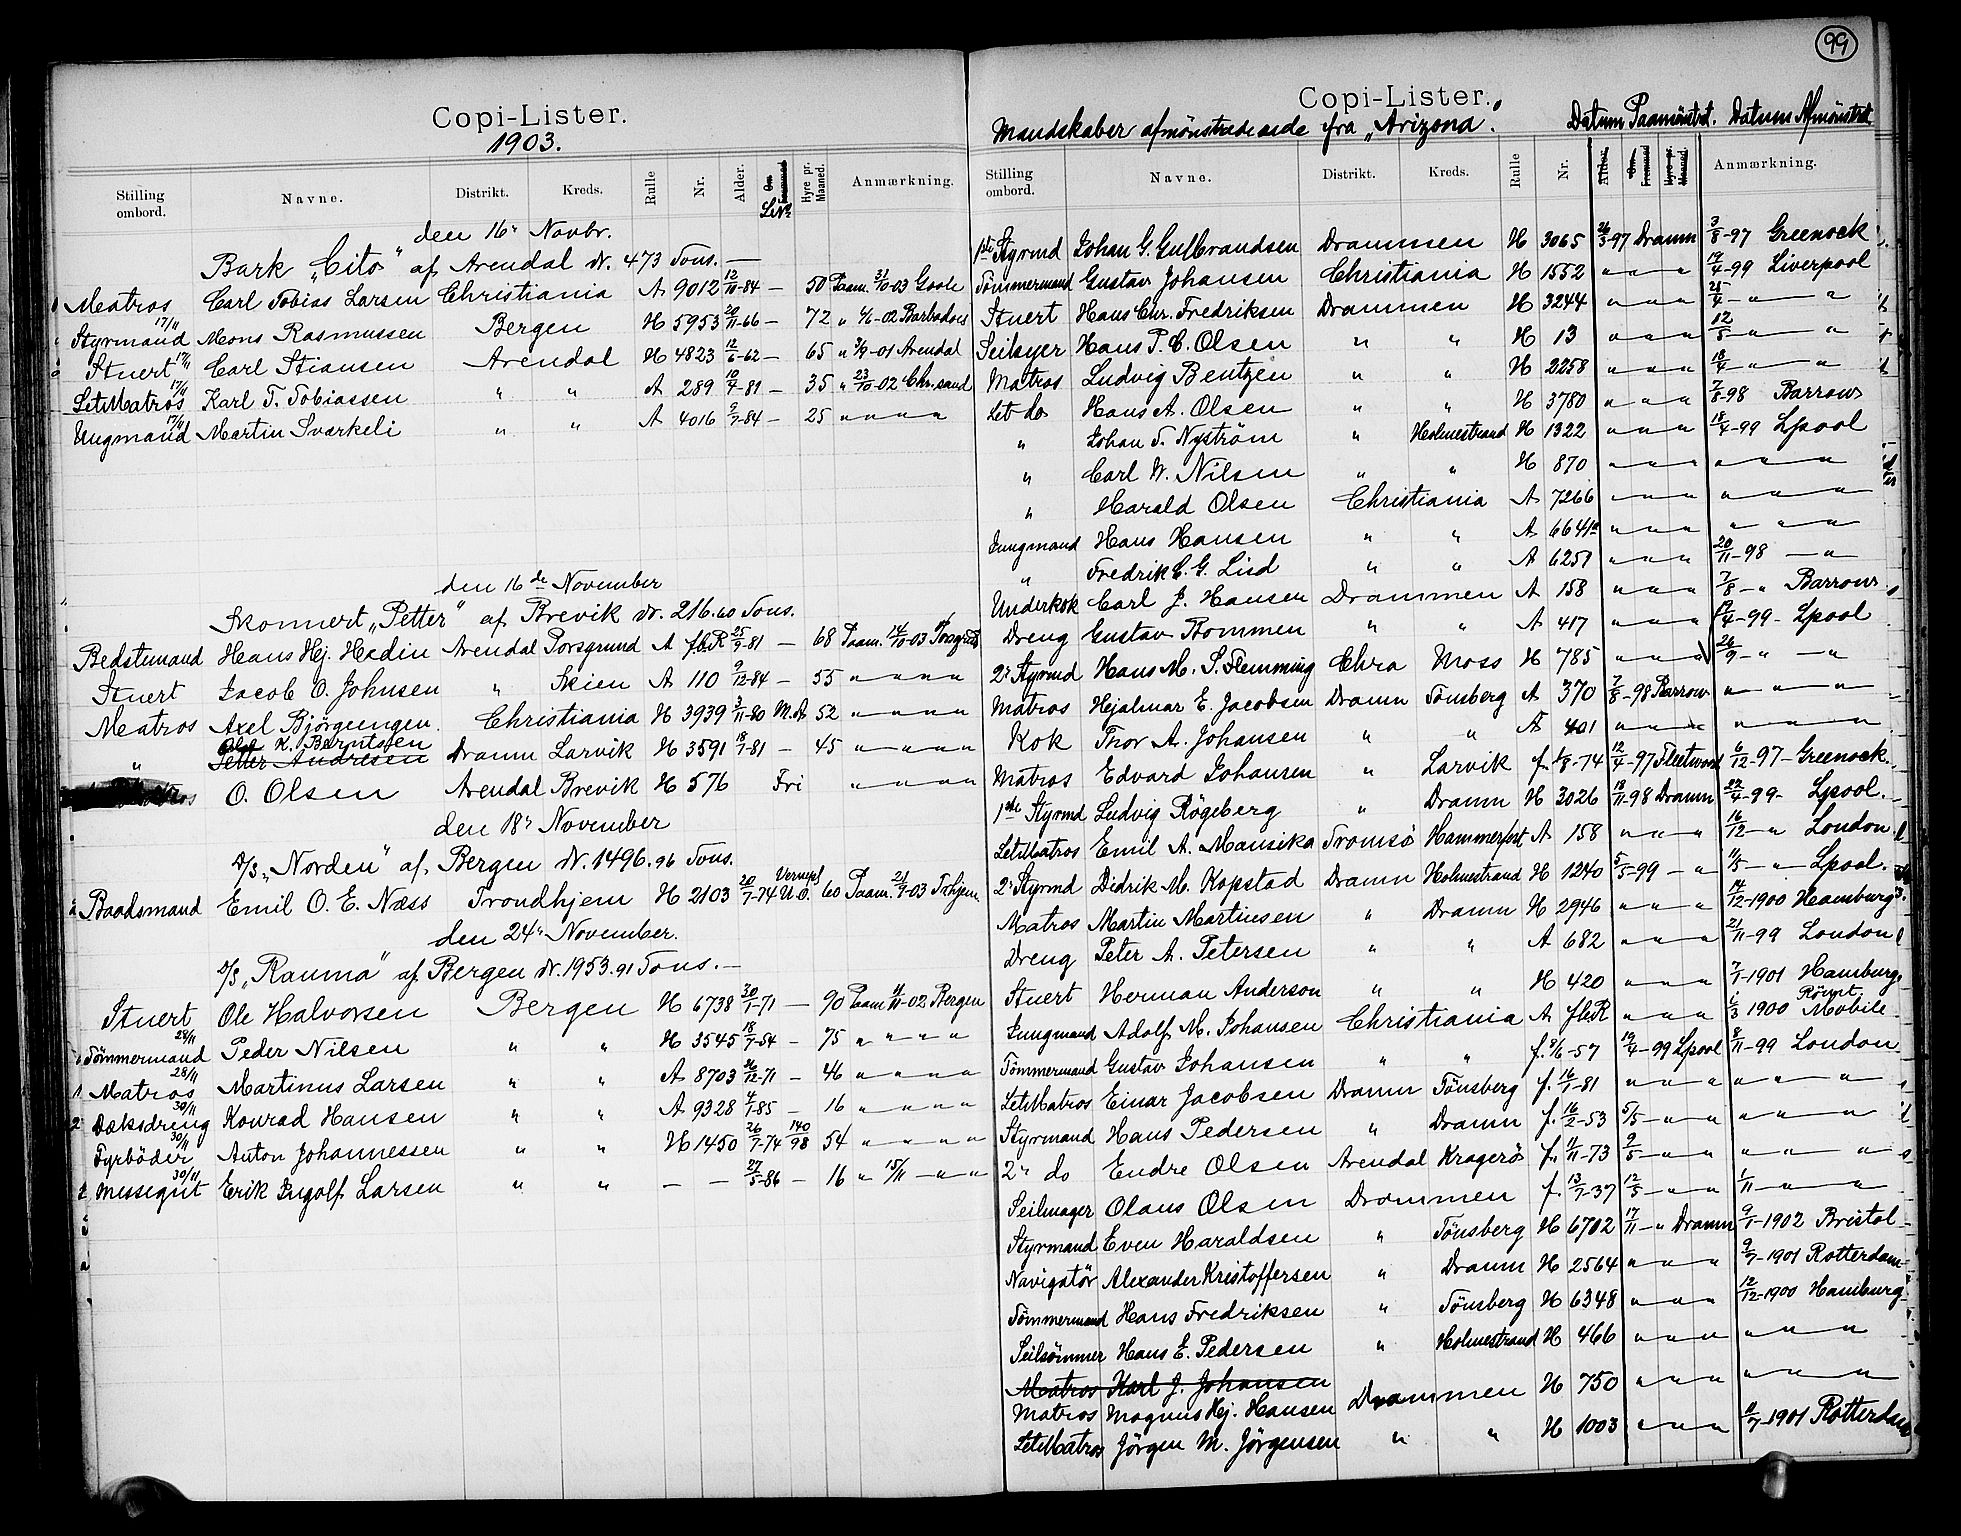 99
Copi-Lister.
1903.
Stilling ombord. Navne. Distrikt. Kreds. Rulle Nr. Alder. Hyre pr. Maaned. Anmærkning.
den 16' Novbr.
Bark "Cito" af Arendal dr. 473 Tons. —
Matros Carl Tobias Larsen Christiania A 9012 12/11-84 — 50 Paam. 31/10-03 Goole
Styrmand 17/11 Mons Rasmussen Bergen H 5953 20/11-66 — 72 " 4/6-02 Barbados
Stuert 17/11 Carl Stiansen Arendal H 4823 12/6-62 — 65 " 3/9-01 Arendal
LetMatros 17/11 Karl T. Tobiassen " " A 289 10/4-81 — 35 " 23/10-02 Chr.sand
Ungmand 17/11 Martin Svarkeli " " A 4016 9/7-84 — 25 " " " "
den 16de November
Skonnert "Petter" af Brevik dr. 216.60 Tons.
Bedstemand Hans Hej. Hedin Arendal Porsgrund A fbR 25/9-81 — 68 Paam. 14/10-03
Stuert Jacob O. Johnsen " Skien A 110 9/12-84 — 55 " " " "
Matros Axel Bjørgengen. Christiania H 3939 3/11-80 M.A 52 " " " "
" K. Berntsen Petter Andresen Dramn Larvik H 3591 18/7-81 — 45 " " " "
O. Olsen Arendal Brevik H 576 Fri " " " "
den 18' November
D/S. "Norden" af Bergen dr. 1496.96 Tons.
Baadsmand Emil O. E. Næss Trondhjem H 2103 20/7-74 U.O. 60 Paam. 21/9-03 Trhjem
den 24' November.
D/S "Rauma" af Bergen dr. 1953.91 Tons. —
Stuert Ole Halvorsen Bergen H 6738 30/1-71 — 90 Paam 4/11-02 Bergen
Tömmermand 28/11 Peder Nilsen " " H 3545 18/7-54 — 75 " " " "
Matros 28/11 Martinus Larsen " " A 8703 26/12-71 — 46 " " " "
Dæksdreng 30/11 Konrad Hansen " " A 9328 4/1-85 — 16 " " " "
Fyrböder 30/11 Anton Johannessen " " H 1450 26/7-74 140/98 54 " " " "
Messegut 30/11 Erik Ingolf Larsen " " — — 27/5-86 — 16 " 15/11 — " "
Copi-Lister.
Mandskaber afmönstrede fra "Arizona". Datum Paamönstret. Datum Afmönstret
Stilling ombord. Navne. Distrikt. Kreds. Rulle Nr. Alder. Anmærkning.
1ste Styrmd Johan G. Gulbrandsen Drammen H 3065 26/3-97 Dramn 3/8-97 Greenock
Tömmermand Gustav Johansen Christiania H 1552 " " " 19/4-99 Liverpool
Stuert Hans Chr. Fredriksen Drammen H 3244 " " " 25/4 — " — "
Seilsyer Hans P. C. Olsen " " H 13 " " " 12/5 " — "
Matros Ludvig Bentzen " " H 2258 " " " 18/4 — " — "
Let do Hans A. Olsen " " H 3780 " " " 7/8-98 Barrow
" Johan T. Nyström " Holmestrand H 1322 " " " 18/4-99 Lpool
" Carl W. Nilsen " " H 870 " " " " " "
" Harald Olsen Christiania A 7266 " " " " " "
Jungmand Hans Hansen " " A 6641 " " " " " "
" Fredrik C. G. Lied " " A 6251 " " " 20/11-98 — "
Underkok Carl J. Hansen Drammen A 158 " " " 7/8 — " Barrow
Dreng Gustav Bommen " " A 417 " " " 19/4-99- Lpool
2' Styrmd Hans M. S. Flemming Chra Moss H 785 " " " 26/9 — " — "
Matros Hejalmar E. Jacobsen Dramn Tönsberg A 370 7/8-98 Barrow " " "
Kok Thor A. Johansen " " A 401 " " " " " "
Matros Edvard Johansen " Larvik f. 1/8-74 12/4-97 Fleetwood 6/12-97- Greenock.
1ste Styrmd Ludvig Rögeberg " Dramn H 3026 18/11-98 Dramn 22/4-99- Lpool.
LetMatros Emil A. Mansika Tromsö Hammerfest A 158 " " " 16/12 — " London
2' Styrmd Didrik M. Kopstad Dramn Holmestrand H 1240 5/5-99 — " 11/5 — " — Lpool.
Matros Martin Martinsen " Dramn H 2946 " " " 14/12-1900 Hamburg
Dreng Peter A. Petersen " " A 682 " " " 21/11-99 London
Stuert Herman Anderson " " H 420 " " " 7/1-1901 Hamburg
Jungmand Adolf M. Johansen Christiania A fbR " " " 1/3 1900 Römt. Mobile
Tömmermand Gustav Johansen " " f. 9/6-57 19/4-99 Lpool 8/11-99 London
LetMatros Einar Jacobsen Dramn Tönsberg f. 16/1-81 " " " " " "
Styrmand Hans Pedersen " Dramn f. 16/2-53 5/5 — " — " " " "
2' do Endre Olsen Arendal Kragerö f. 11/11-73 9/5 — " — " " " "
Seilmager Olaus Olsen Drammen f. 13/7-37 12/5 — " — " 1/11 — " — "
Styrmand Even Haraldsen " Tönsberg H 6702 17/11 — " Dramn 9/1-1902 Bristol
Navigatör Alexander Kristoffersen " Dramn H 2564 " " " 9/7-1901 Rotterdam
Tömmermand Hans Fredriksen " Tönsberg H 6348 " " " 12/12-1900 Hamburg
Seilsömmer Hans E. Pedersen " Holmestrand H 466 " " " " " "
Matros Karl J. Johansen
Matros Magnus Hej. Hansen Drammen H 750 " " " " " "
LetMatros Jörgen M. Jörgensen " " H 1003 " " " 11/7-1901 Rotterdam